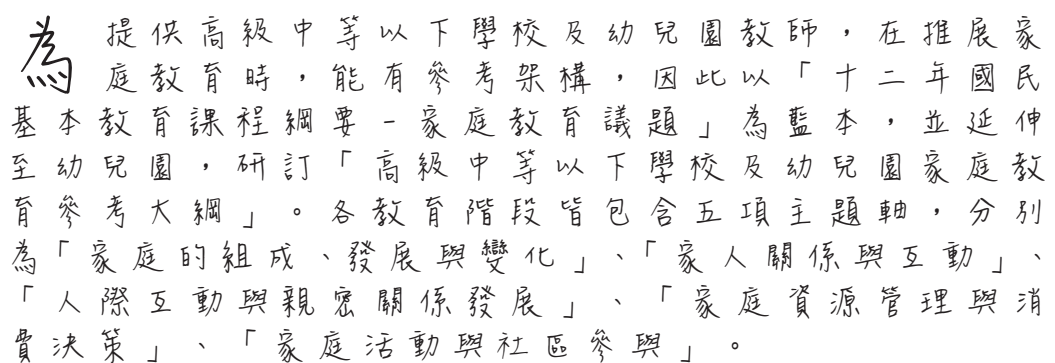 為提供高級中等以下學校及幼兒園教師，在推展家
庭教育時，能有參考架構，因此以「十二年國民
基本教育課程綱要－家庭教育議題」為藍本，並延伸
至幼兒園，研訂「高級中等以下學校及幼兒園家庭教
育參考大綱」。各教育階段皆包含五項主題軸，分別
為「家庭的組成、發展與變化」、「家人關係與互動」、
「人際互動與親密關係發展」、「家庭資源管理與消
費決策」、「家庭活動與社區參與」。